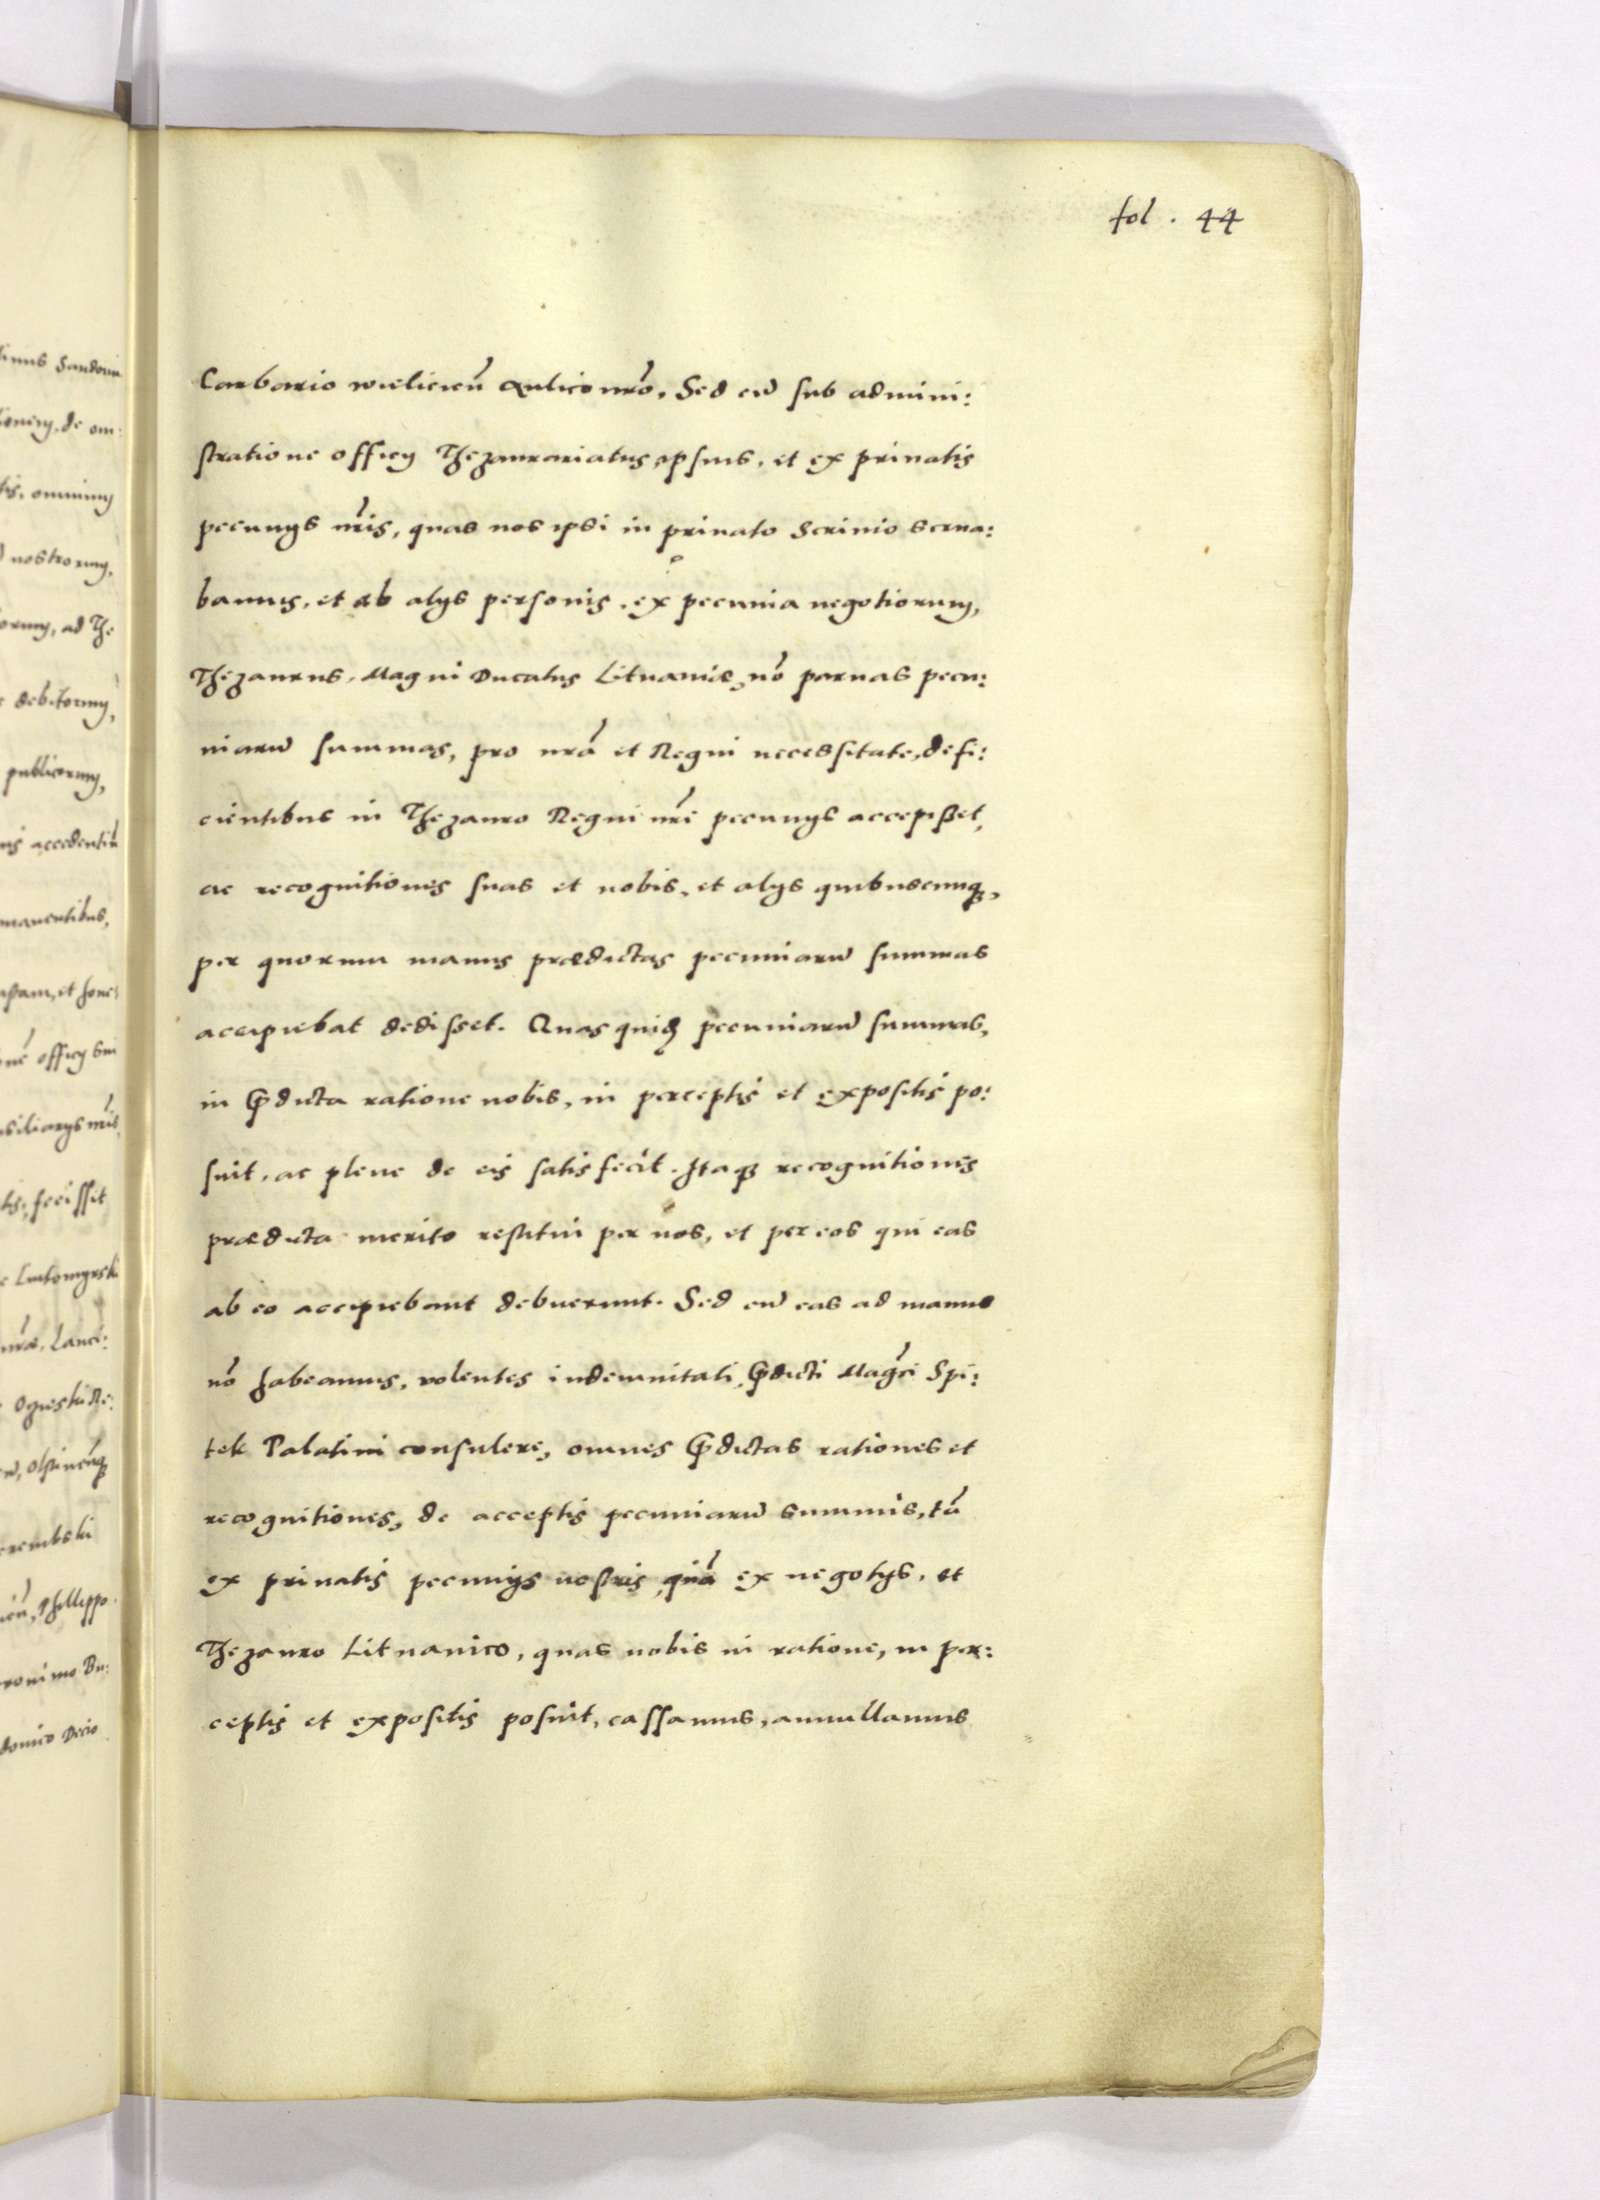 fol. 44
Carbario wielicień Aulico nr̃o, Sed cũ sub admini:
stratione officÿ Thezaurariatus ipsius, et ex priuatis
pecunÿs nr̃is, quas nos ipsi in priuato Scrinio serua:
bamus, et ab alÿs personis, ex pecunia negotiorum,
Thezaurus, Magni Ducatus Lituaniæ, nõ paruas pecu:
niarũ summas, pro nr̃a et Regni necessitate, defi:
cientibus in Thezauro Regni nr̃i pecunÿs accepißet,
ac recognitiones suas et nobis, et alÿs quibuscunqȝ,
per quorum manus prædictas pecuniarũ summas
accipiebat dedisset. Quas quidẽ pecuniarũ summas,
in p̃dicta ratione nobis, in perceptis et expositis po:
suit, ac plene de eis satisfecit. Itaqȝ recognitiones
prædicta merito restitui per nos, et per eos qui eas
ab eo accipiebant debuerunt. Sed cũ eas ad manus
nõ habeamus, volentes indemnitati p̃dicti Mag̃ci Spi:
tek Palatini consulere, omnes p̃dictas rationes et
recognitiones, de acceptis pecuniarũ summis, tã
ex priuatis pecunÿs nostris, quã ex negotÿs, et
Thezauro Lituanico, quas nobis in ratione, in per:
ceptis et expositis posuit, cassamus, annullamus
tinus Sandomi
de om:
tis, omnium
nostrorum,
orum, ad The
debitorum,
publicorum,
accedentiũ
manentibus,
et hone:
officÿ sui
siliarÿs nr̃is,
tis, fecisset
Lutomyrski
nr̃æ, Lanci:
Ozieski Re:
erembski
Phillippo
ronimo Bu:
Decio